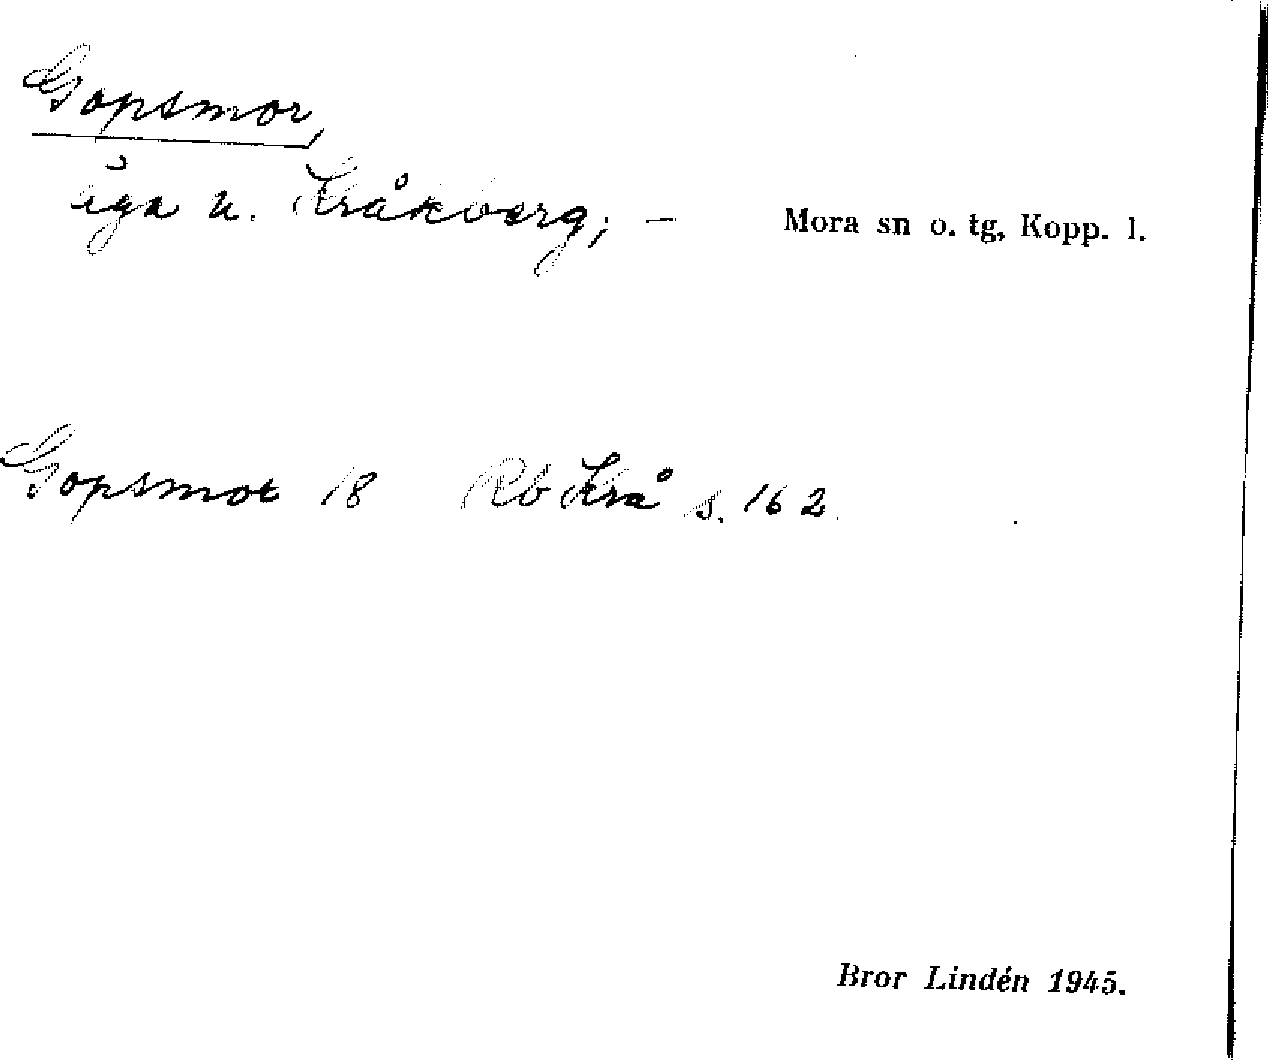 Gopsmor,
äga u. Kråkberg; – Mora sn o. tg, Kopp. l.
Gopsmot 18 Rb Krå s. 162
Bror Lindén 1945.